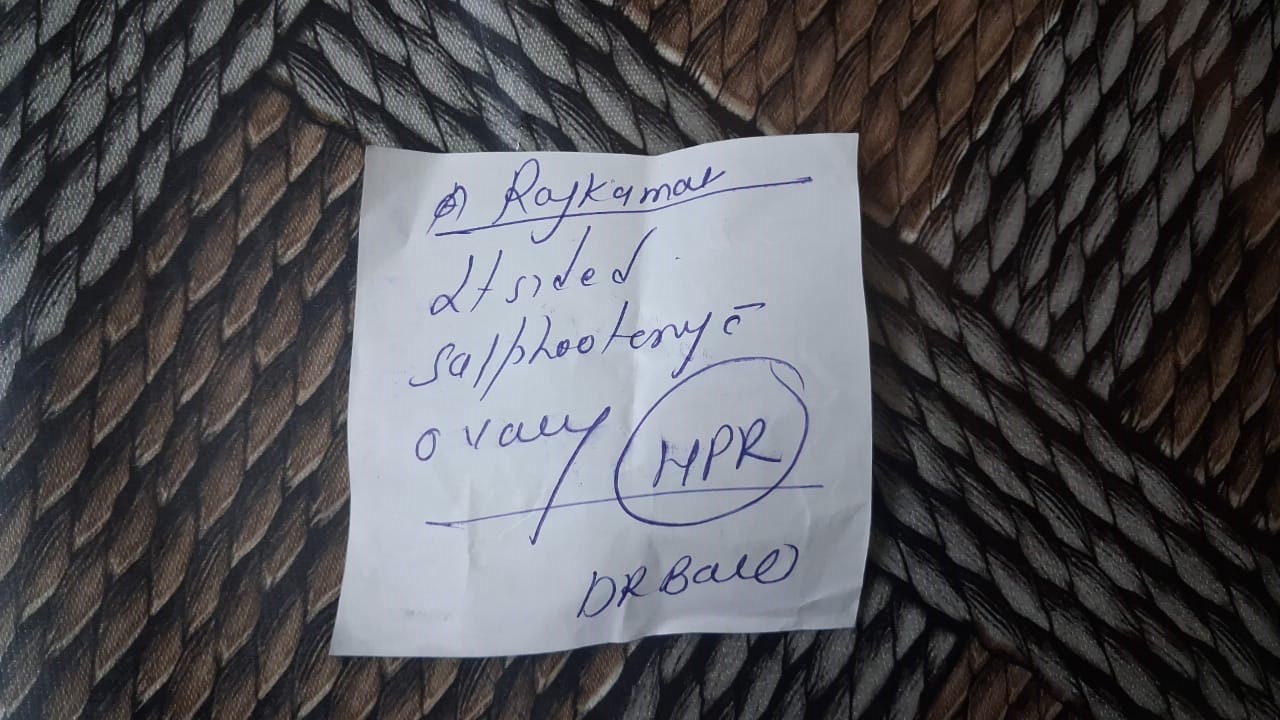 Rajkamal
Lt sided
salphootemy c̄
ovary HPR
DR Bala